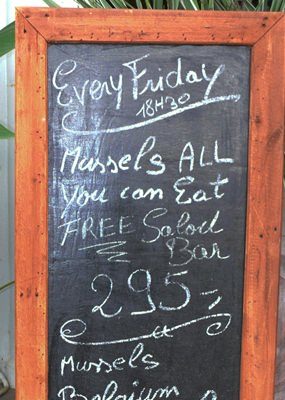 Every Friday
18H30
Mussels ALL
you can Eat
FREE Salad
Bar
295,-
Mussels
Belgium